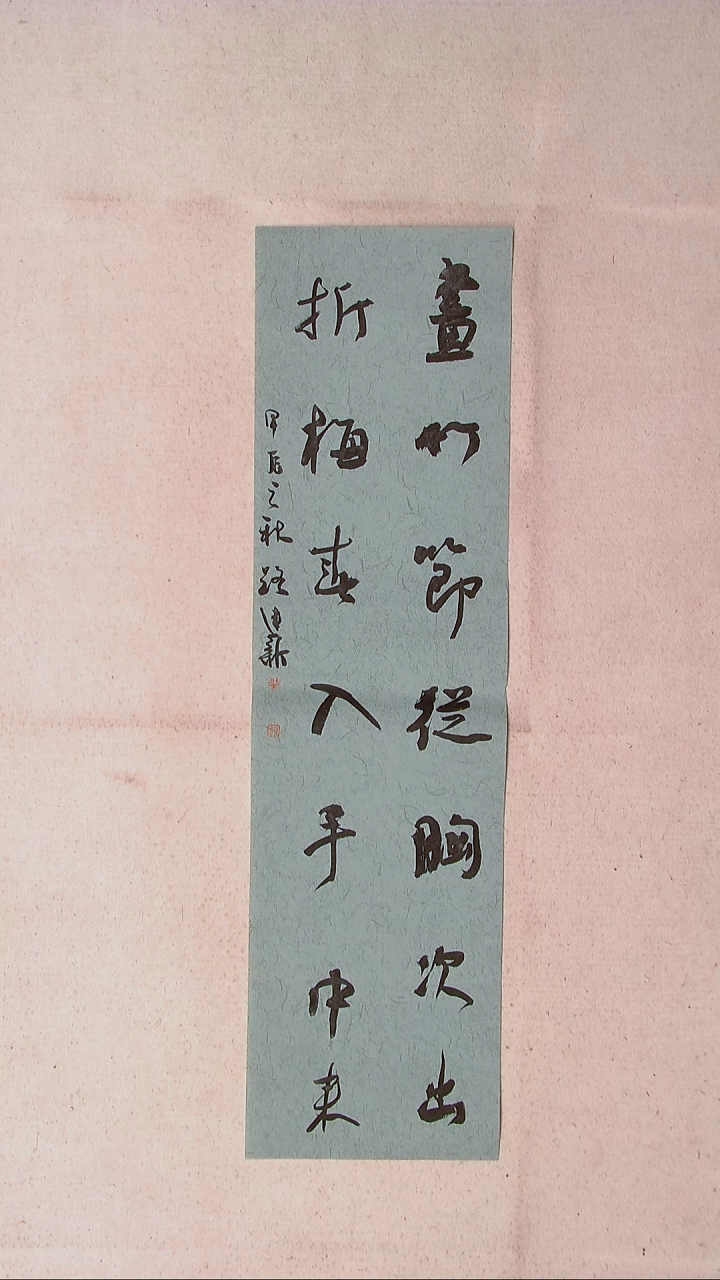 畫竹節從胸次出
折梅春入手中來
甲辰之秋路建